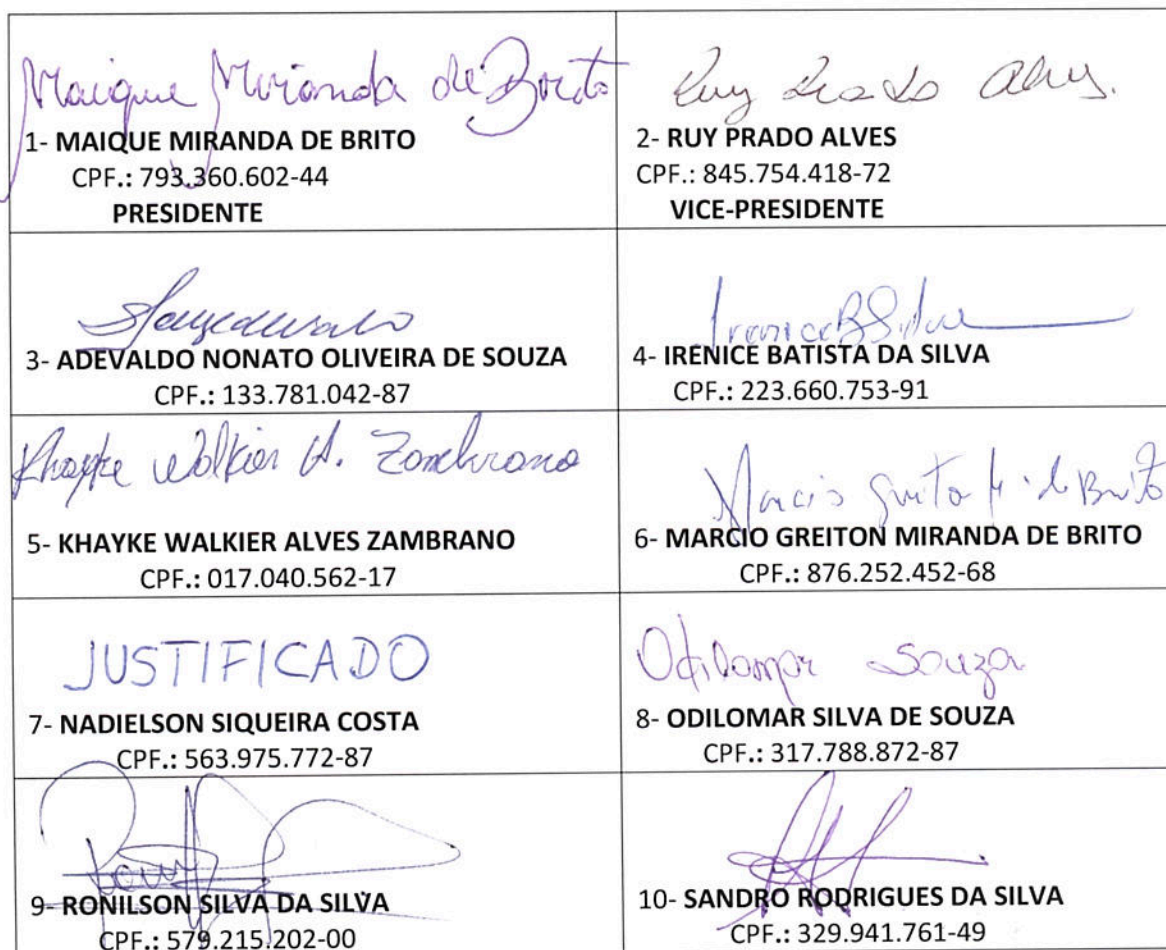 Maique Miranda de Brito
1- MAIQUE MIRANDA DE BRITO
CPF.: 793.360.602-44
PRESIDENTE
Ruy Prado Alves.
2- RUY PRADO ALVES
CPF.: 845.754.418-72
VICE-PRESIDENTE
3- ADEVALDO NONATO OLIVEIRA DE SOUZA
CPF.: 133.781.042-87
Irenice B Silva
4- IRENICE BATISTA DA SILVA
CPF.: 223.660.753-91
Khayke Walkier A. Zambrano
5- KHAYKE WALKIER ALVES ZAMBRANO
CPF.: 017.040.562-17
Marcio Greiton M. de Brito
6- MARCIO GREITON MIRANDA DE BRITO
CPF.: 876.252.452-68
JUSTIFICADO
7- NADIELSON SIQUEIRA COSTA
CPF.: 563.975.772-87
Odilomar Souza
8- ODILOMAR SILVA DE SOUZA
CPF.: 317.788.872-87
9- RONILSON SILVA DA SILVA
CPF.: 579.215.202-00
10- SANDRO RODRIGUES DA SILVA
CPF.: 329.941.761-49